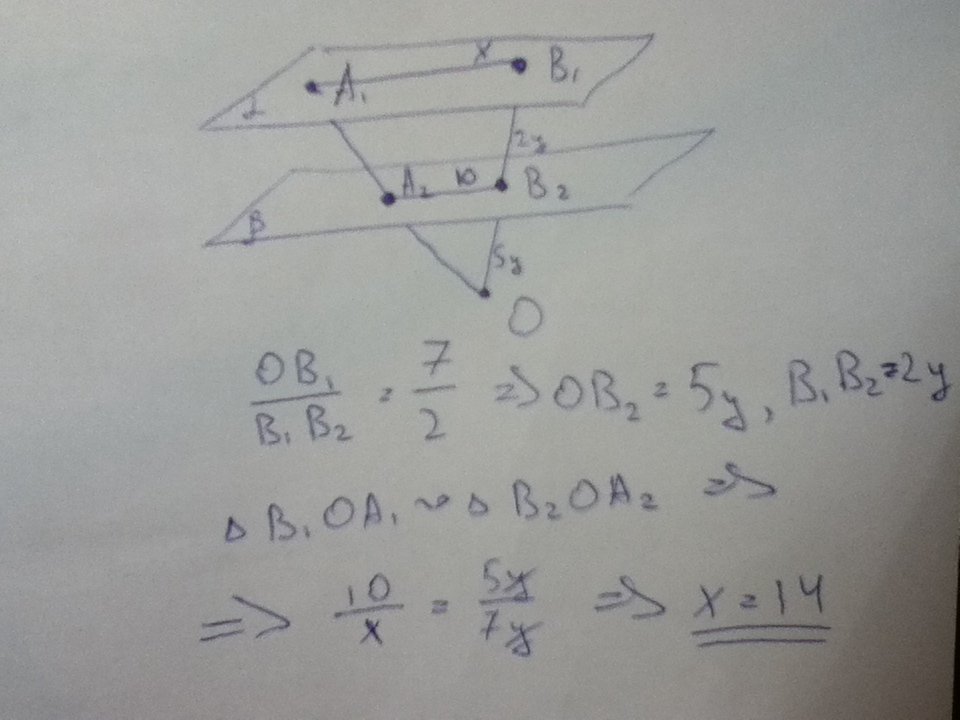 x
A₁ B₁
α
2y
A₂ 10 B₂
β
5y
O
OB₁/B₁B₂ = 7/2 => OB₂ = 5y, B₁B₂ = 2y
Δ B₁OA₁ ~ Δ B₂OA₂ =>
=> 10/x = 5y/7y => x = 14